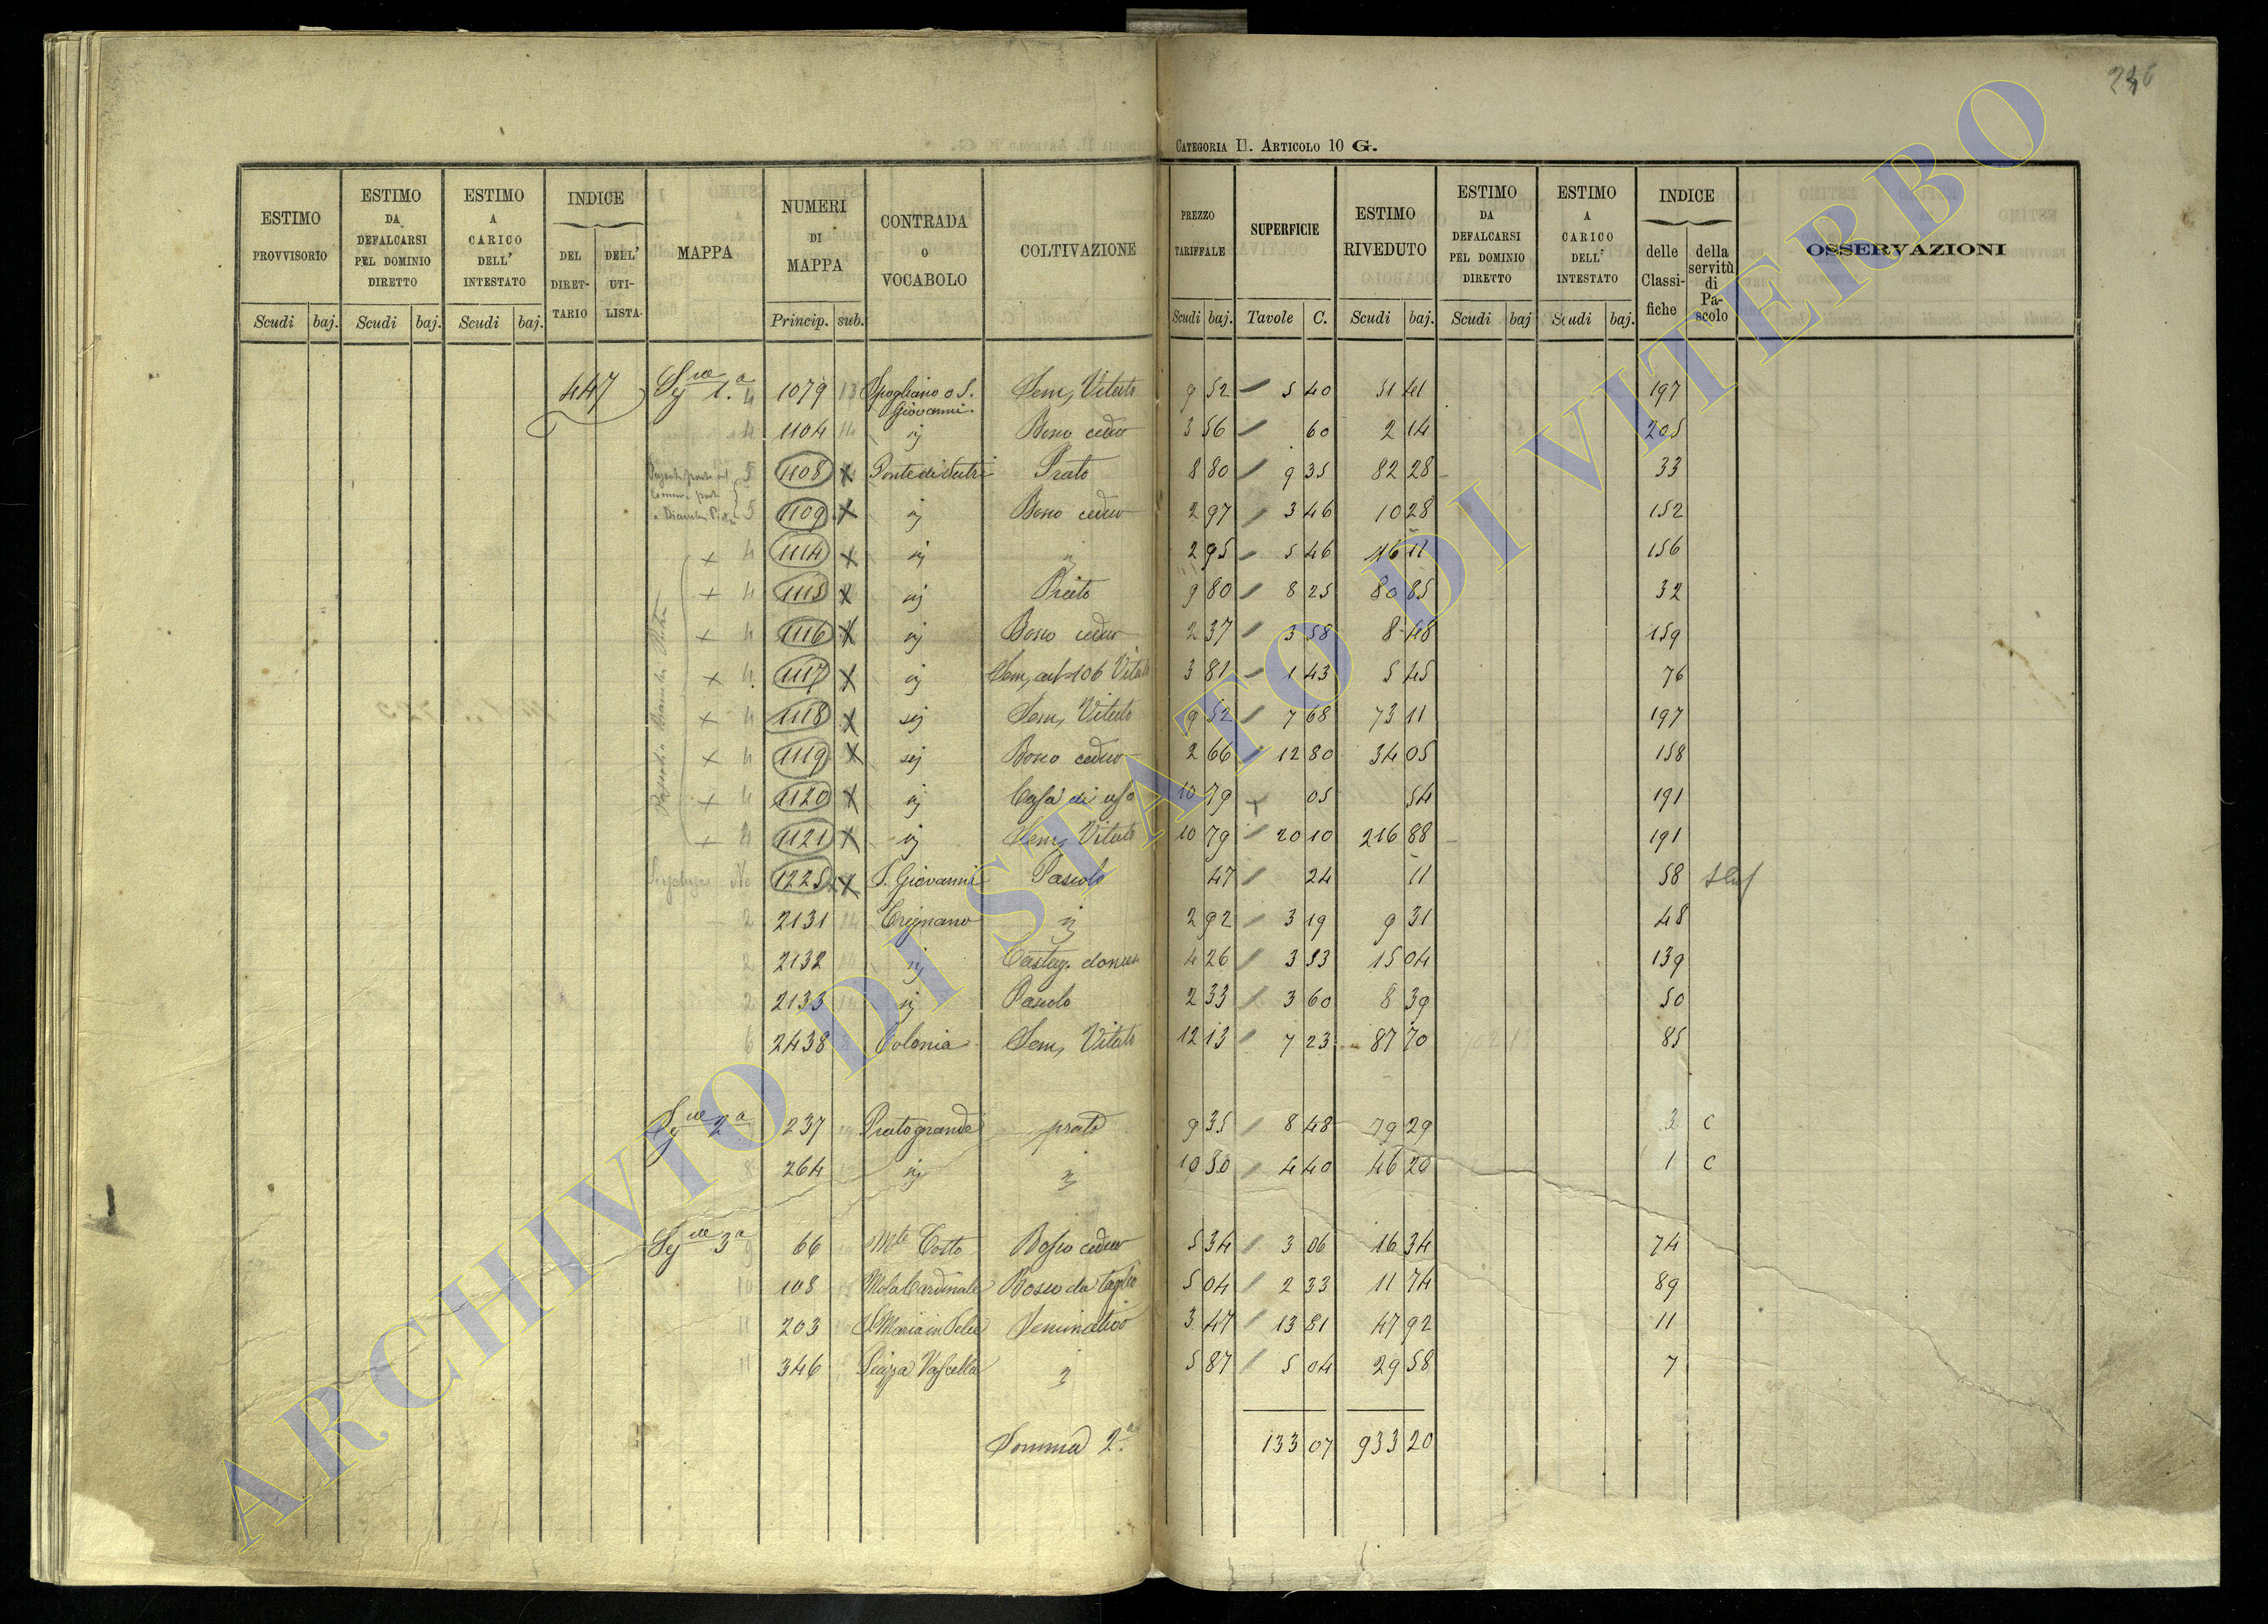 236
CATEGORIA II. ARTICOLO 10 G.
ESTIMO PROVVISORIO
ESTIMO DA DEFALCARSI PEL DOMINIO DIRETTO
ESTIMO A CARICO DELL' INTESTATO
INDICE
DEL DIRET-TARIO
DELL' UTI-LISTA
MAPPA
NUMERI DI MAPPA
CONTRADA O VOCABOLO
COLTIVAZIONE
PREZZO TARIFFALE
SUPERFICIE
ESTIMO RIVEDUTO
ESTIMO DA DEFALCARSI PEL DOMINIO DIRETTO
ESTIMO A CARICO DELL' INTESTATO
INDICE
delle Classi-fiche
della servitù di Pa-scolo
OSSERVAZIONI
Scudi baj. Scudi baj. Scudi baj. Princip. sub. Scudi baj. Tavole C. Scudi baj. Scudi baj Scudi baj.
447 Segue 1.a 4 1079 Spogliano o S. Giovanni. Sem, Vitato 9 52 5 40 51 41 197
4 1104 ij Bosco ceduo 3 56 60 2 14 205
5 1108 x Ponte di Sutri Prato 8 80 9 35 82 28 33
5 1109 x ij Bosco ceduo 2 97 3 46 10 28 152
x 4 1114 x ij " 2 95 5 46 16 11 156
x 4 1115 x ij Prato 9 80 8 25 80 85 32
x 4 1116 x ij Bosco ceduo 2 37 3 58 8 48 159
x 4 1117 x ij Sem, 3 81 1 43 5 45 76
x 4 1118 x ij Sem, Vitato 9 52 7 68 73 11 197
x 4 1119 x ij Bosco ceduo 2 66 12 80 34 05 158
x 4 1120 x ij Casa di uso 10 79 05 54 191
x 4 1121 x ij Sem, Vitato 10 79 20 10 216 88 191
1225 x S. Giovanni Pascolo 47 24 11 58
2 2131 Trignano ij 2 92 3 19 9 31 48
2 2132 ij Castag. 4 26 3 53 15 04 139
2 2133 ij Pascolo 2 33 3 60 8 39 50
6 2438 Colonia Sem, Vitato 12 13 7 23 87 70 85
Segue 2a 237 Prato grande prato 9 35 8 48 79 29 3 C
8 264 ij ij 10 50 4 40 46 20 1 C
Segue 3a 9 66 Mte Tosto Bosco ceduo 5 34 3 06 16 34 74
10 108 Mola Cardinale Bosco da taglio 5 04 2 33 11 74 89
11 203 S. Maria in Seminativo 3 47 13 81 47 92 11
11 346 Piazza Vascella ij 5 87 5 04 29 58 7
Somma 2.a 133 07 933 20
ARCHIVIO DI STATO DI VITERBO